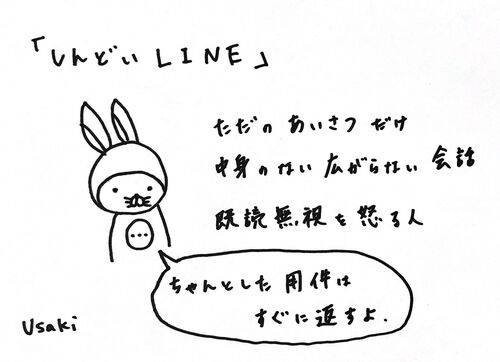 「しんどい LINE」
ただの あいさつ だけ
中身のない 広がらない 会話
既読無視を怒る人
ちゃんとした 用件は
すぐに返すよ.
Usaki